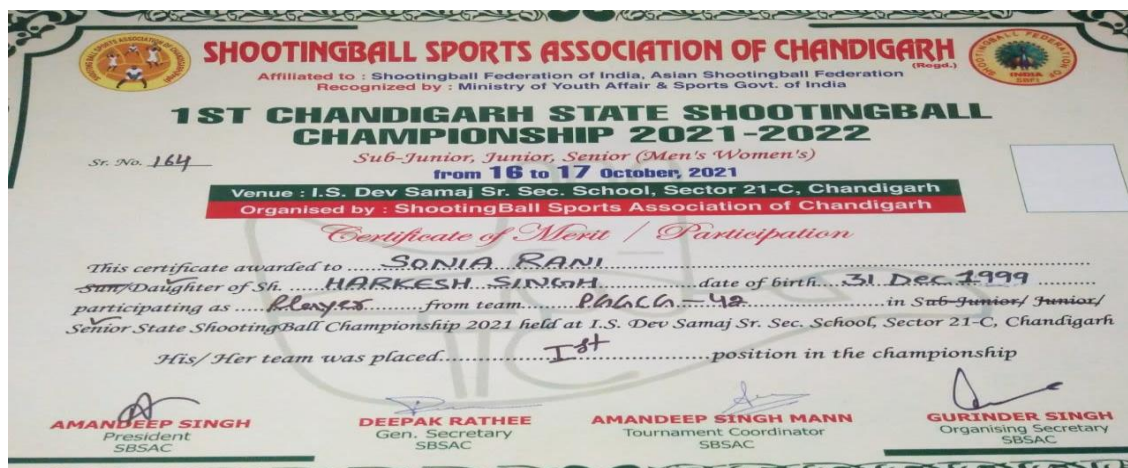 SHOOTINGBALL SPORTS ASSOCIATION OF CHANDIGARH
(Regd.)
Affiliated to : Shootingball Federation of India, Asian Shootingball Federation
Recognized by : Ministry of Youth Affair & Sports Govt. of India
1ST CHANDIGARH STATE SHOOTINGBALL
CHAMPIONSHIP 2021-2022
Sr. No. 164
Sub-Junior, Junior, Senior (Men's Women's)
from 16 to 17 October, 2021
Venue : I.S. Dev Samaj Sr. Sec. School, Sector 21-C, Chandigarh
Organised by : ShootingBall Sports Association of Chandigarh
Certificate of Merit / Participation
This certificate awarded to SONIA RANI
Son/Daughter of Sh. HARKESH SINGH date of birth 31 Dec. 1999
participating as Player from team PGGCG-42 in Sub-Junior/ Junior/
Senior State ShootingBall Championship 2021 held at I.S. Dev Samaj Sr. Sec. School, Sector 21-C, Chandigarh
His/ Her team was placed Ist position in the championship
AMANDEEP SINGH
President
SBSAC
DEEPAK RATHEE
Gen. Secretary
SBSAC
AMANDEEP SINGH MANN
Tournament Coordinator
SBSAC
GURINDER SINGH
Organising Secretary
SBSAC